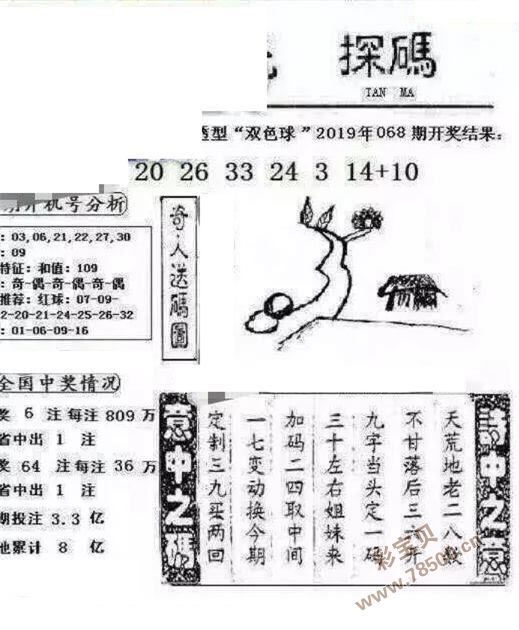 探碼
TAN MA
造型“双色球”2019年068期开奖结果:
20 26 33 24 3 14+10
期开机号分析
: 03,06,21,22,27,30
: 09
特征: 和值: 109
: 奇-偶-奇-偶-奇-偶
推荐: 红球: 07-09-
2-20-21-24-25-26-32
: 01-06-09-16
奇人送碼圖
全国中奖情况
奖 6 注每注 809 万
省中出 1 注
奖 64 注每注 36 万
省中出 1 注
期投注 3.3 亿
他累计 8 亿
詩中之意
天荒地老二八載
不甘落后三六开
九字当头定一码
三十左右姐妹来
加码二四取中间
一七变动换今期
定制三九买两回
意中之碼
彩宝贝
www.78500.cn